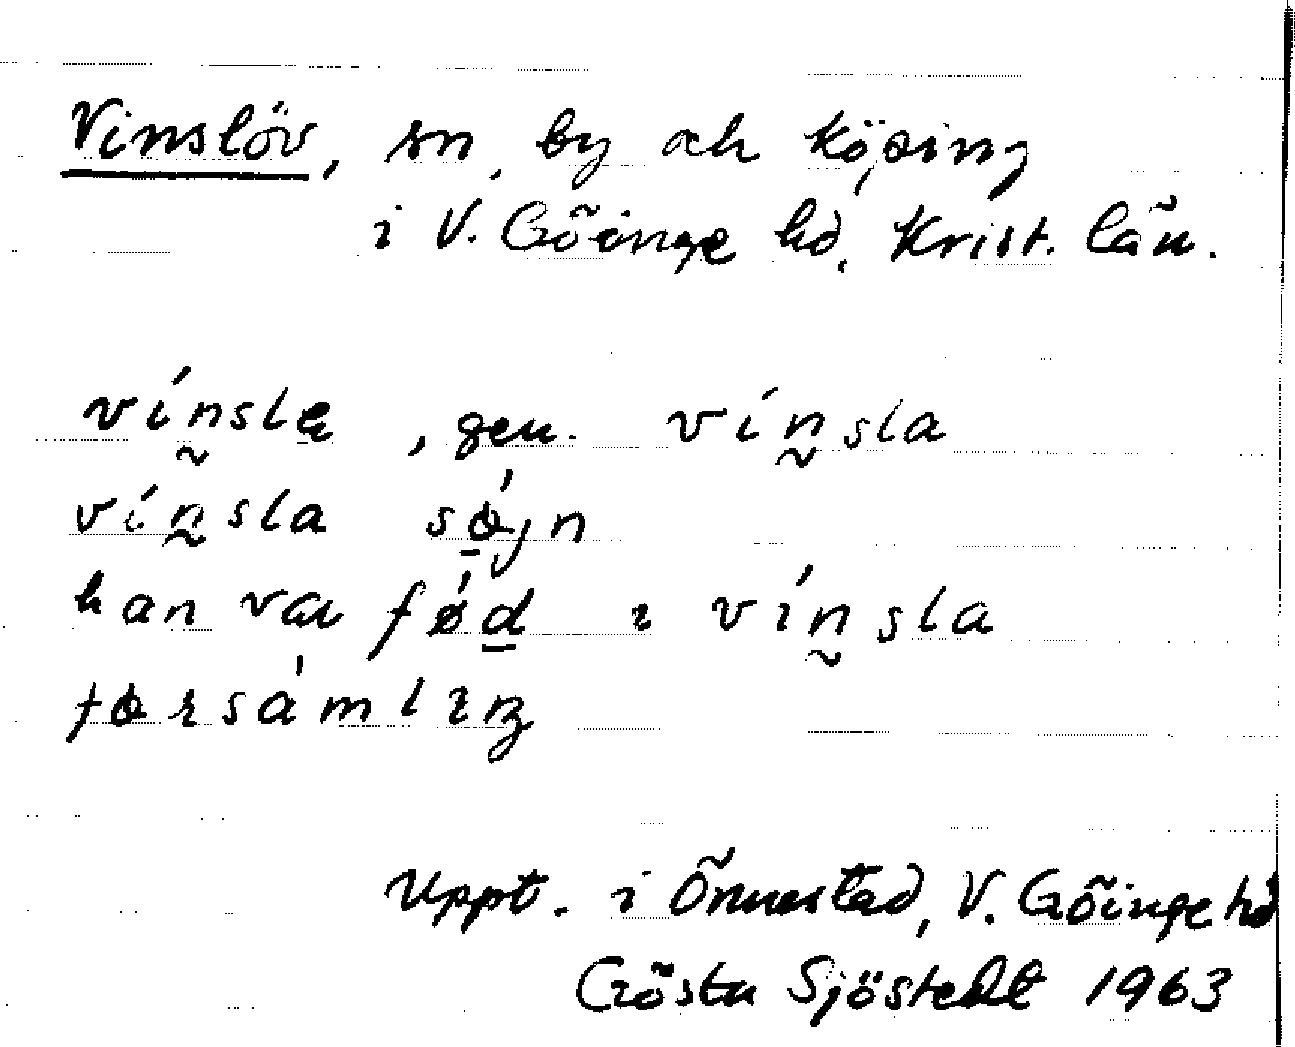 Vinslöv, sn, by och köping
i V. Göinge hd, Krist. län.
vín̰slę, gen. vín̰sla
vín̰sla sǿ̱jn
han var fǿḏ ı vín̰sla
førsámlıŋ
Uppt. i Önnestad, V. Göinge hd
Gösta Sjöstedt 1963